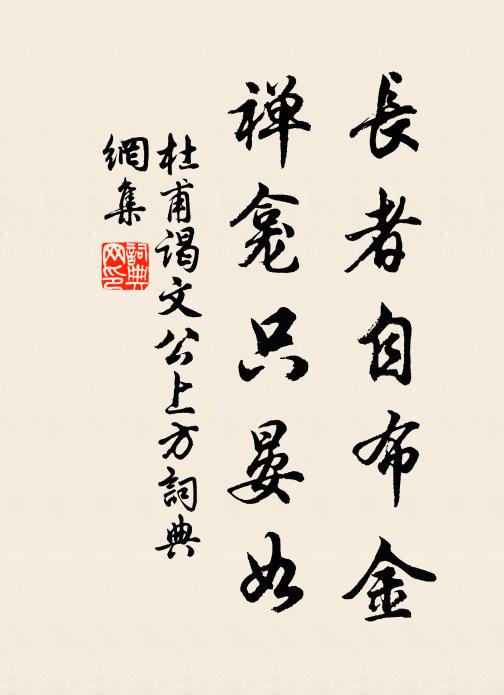 長者自布金
禅龛只晏如
杜甫谒文公上方詞典
網集
詞典
网印